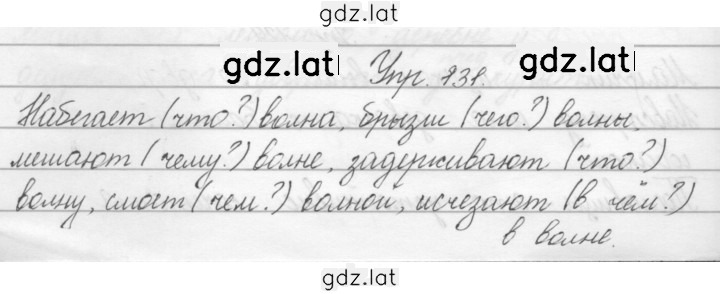 gdz.lat
gdz.lat
gdz.lat
Упр. 231.
Набегает (что?) волна, брызги (чего?) волны,
мешают (чему?) волне, задерживают (что?)
волну, смоет (чем?) волной, исчезают (в чём?)
в волне.
gdz.lat